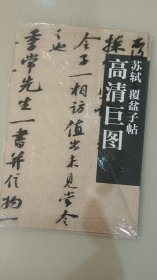 苏轼 覆盆子帖
高清巨图
覆
採
令子一相访值出未见当令
之也
季常先生一书并信物一